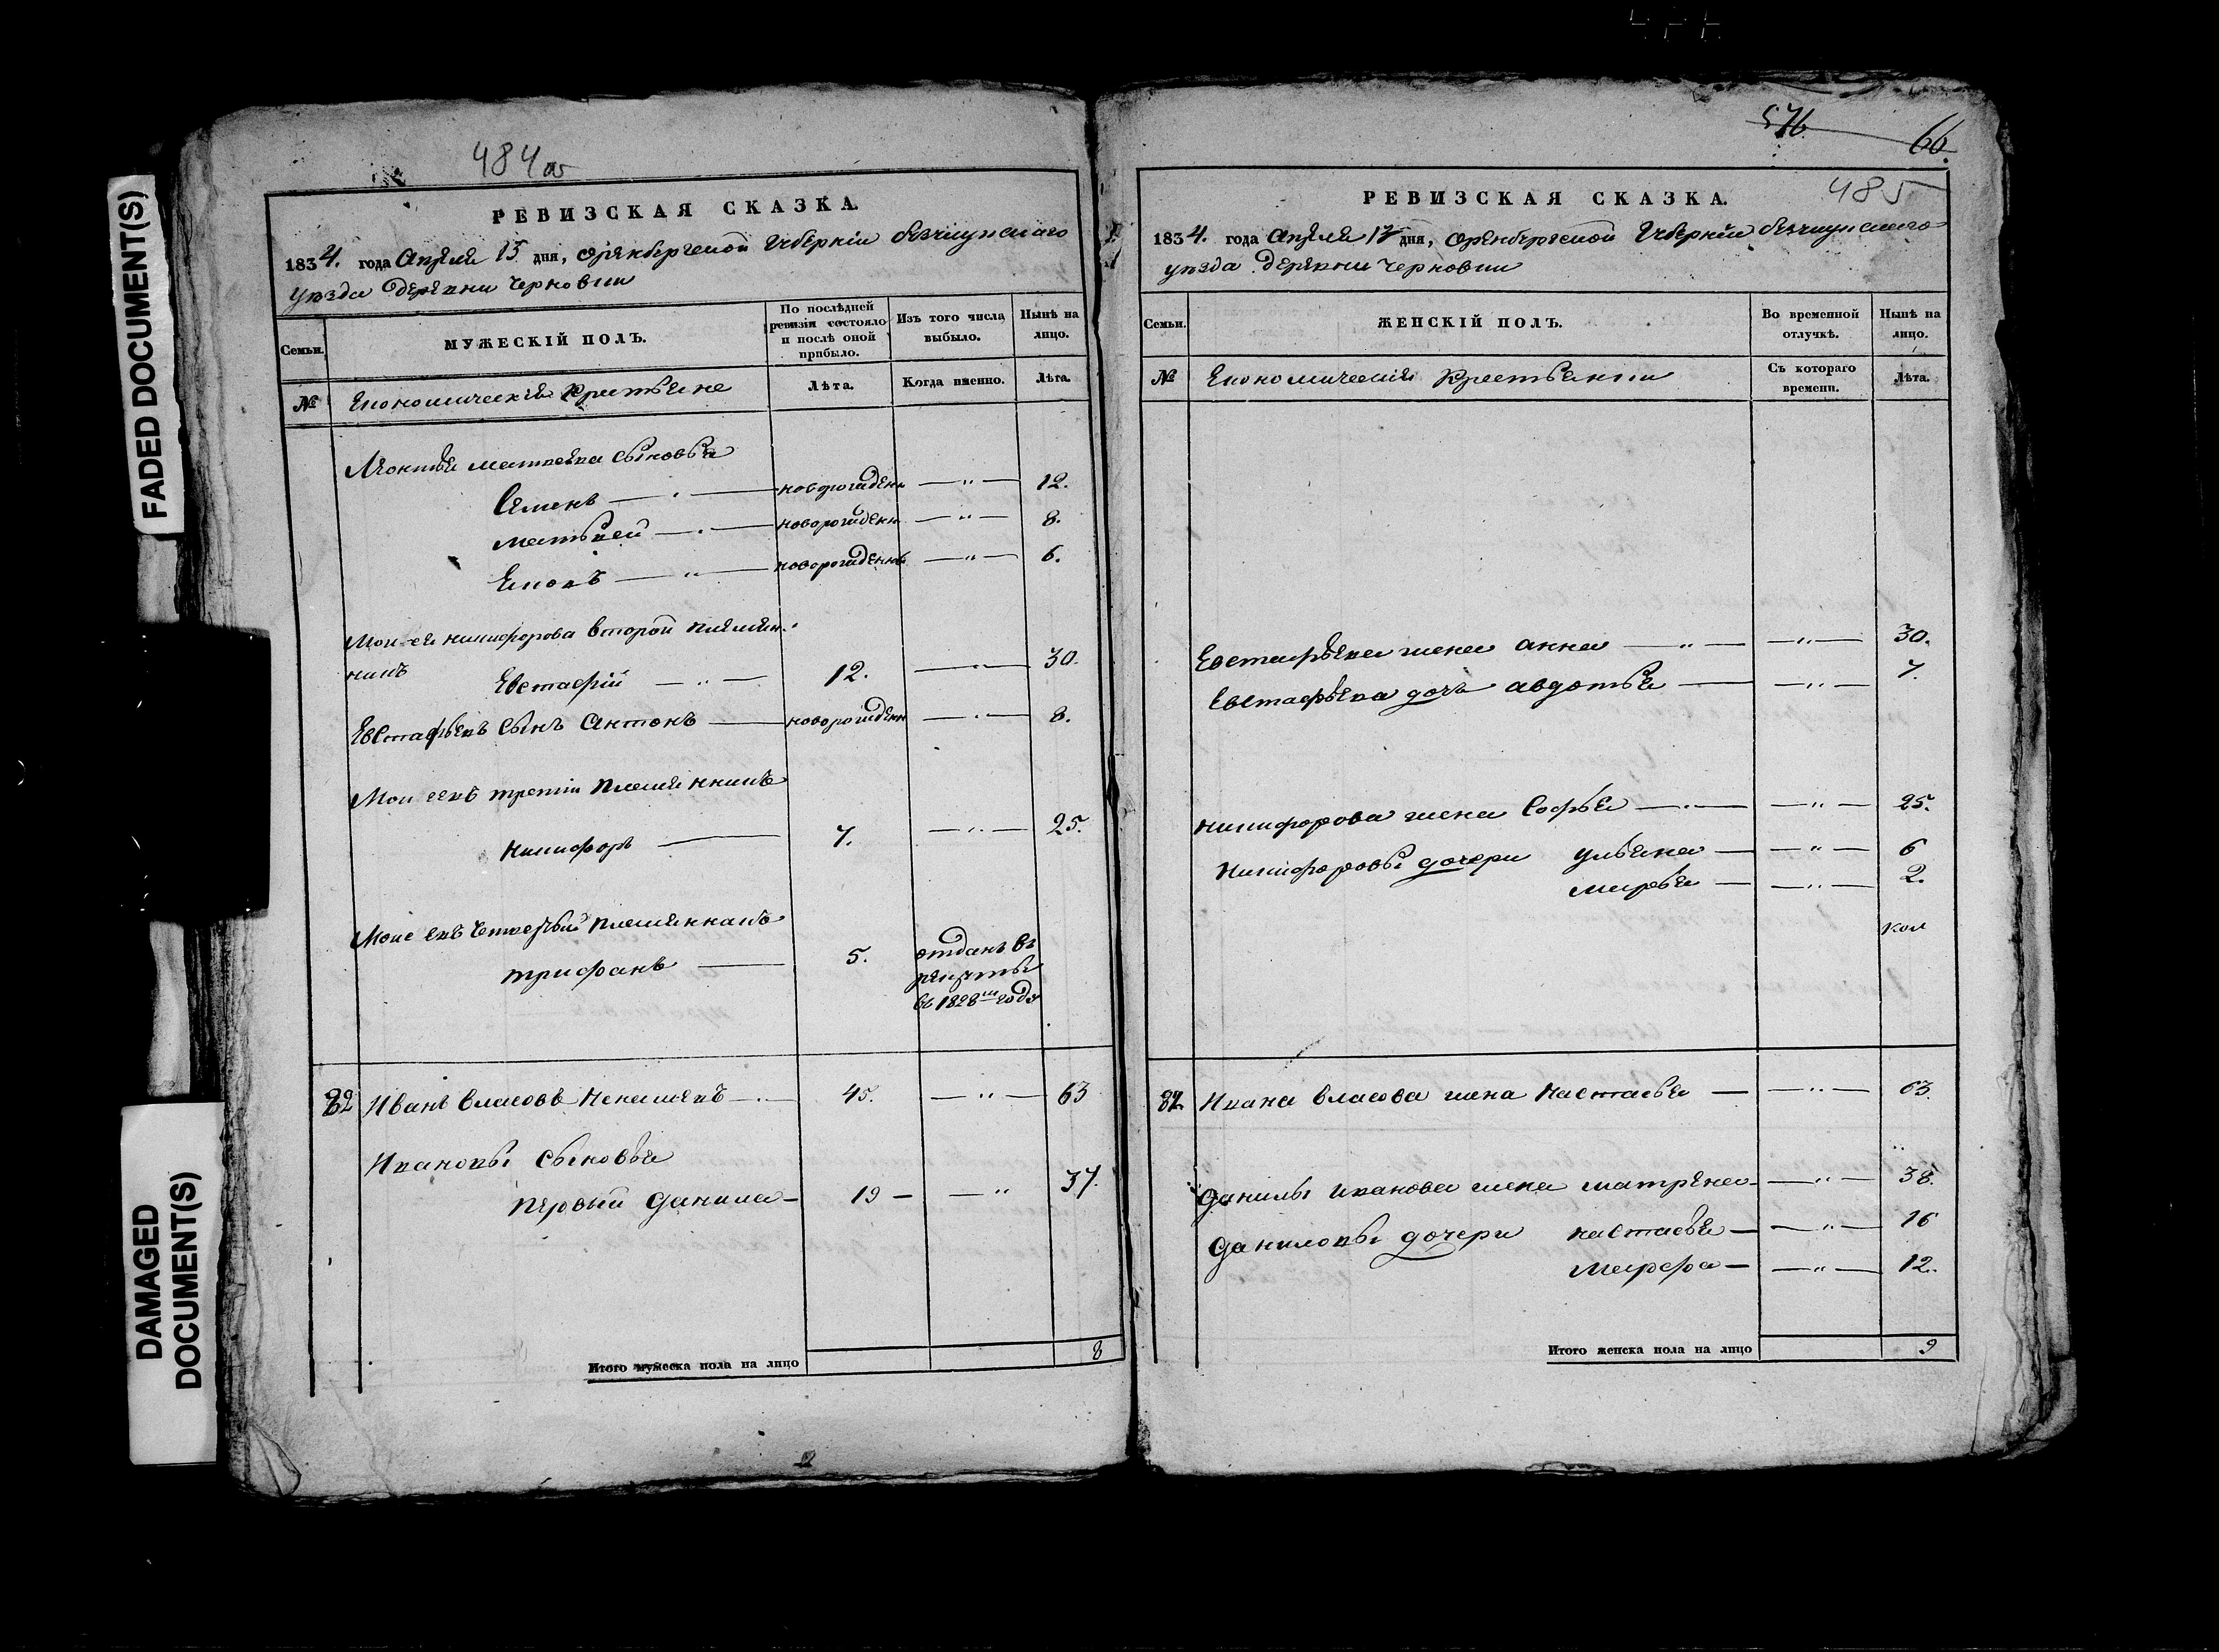 FADED DOCUMENT(S)
DAMAGED
DOCUMENT(S)
484 об
РЕВИЗСКАЯ СКАЗКА.
1834. года Апреля 15 дня, Оренбургской Губернии
уезда деревни Черновки
Семьи.
МУЖЕСКІЙ ПОЛЪ.
По послѣдней ревизіи состояло и послѣ оной прибыло.
Изъ того числа выбыло.
Нынѣ на лицо.
№
Економические Крестьяне
Лѣта.
Когда именно.
Лѣта.
Леонтья Матвеева сыновья
Семенъ — новорожденъ — " — 12.
Матвей — новорожденъ — " — 8.
новорожденъ — " — 6.
Моисея Никифорова второй племян-
никъ Евстафий — " — 12. — " — 30.
Евстафьевъ сынъ Антонъ — новорожденъ — " — 8.
Моисеевъ третий племянникъ
Никифоръ — 7. — " — 25.
Моисеевъ четвертый племянникъ
Трифанъ — 5. отданъ въ
рекруты
въ 1828м году
82 Иванъ Власовъ — 45. — " — 63
Ивановы сыновья
первый Данила — 19 — — " 37.
Итого мужеска пола на лицо 8
2
576
66.
485
РЕВИЗСКАЯ СКАЗКА.
1834. года Апреля дня, Оренбургской Губернии
уезда деревни Черновки
Семьи.
ЖЕНСКІЙ ПОЛЪ.
Во временной отлучкѣ.
Нынѣ на лицо.
№
Економические Крестьянки
Съ котораго времени.
Лѣта.
Евстафьева жена Анна — " — — " — 30.
Евстафьева дочь Авдотья — — " — 7.
Никифорова жена Софья — " — — " — 25.
Никифоровы дочери Ульяна — — " — 6
Марья — — " — 2.
82. Ивана Власова жена Настасья — — " — 63.
Данилы Иванова жена Матрена — — " — 38.
Даниловы дочери Настасья — — " — 16
Марфа — — " — 12.
Итого женска пола на лицо 9